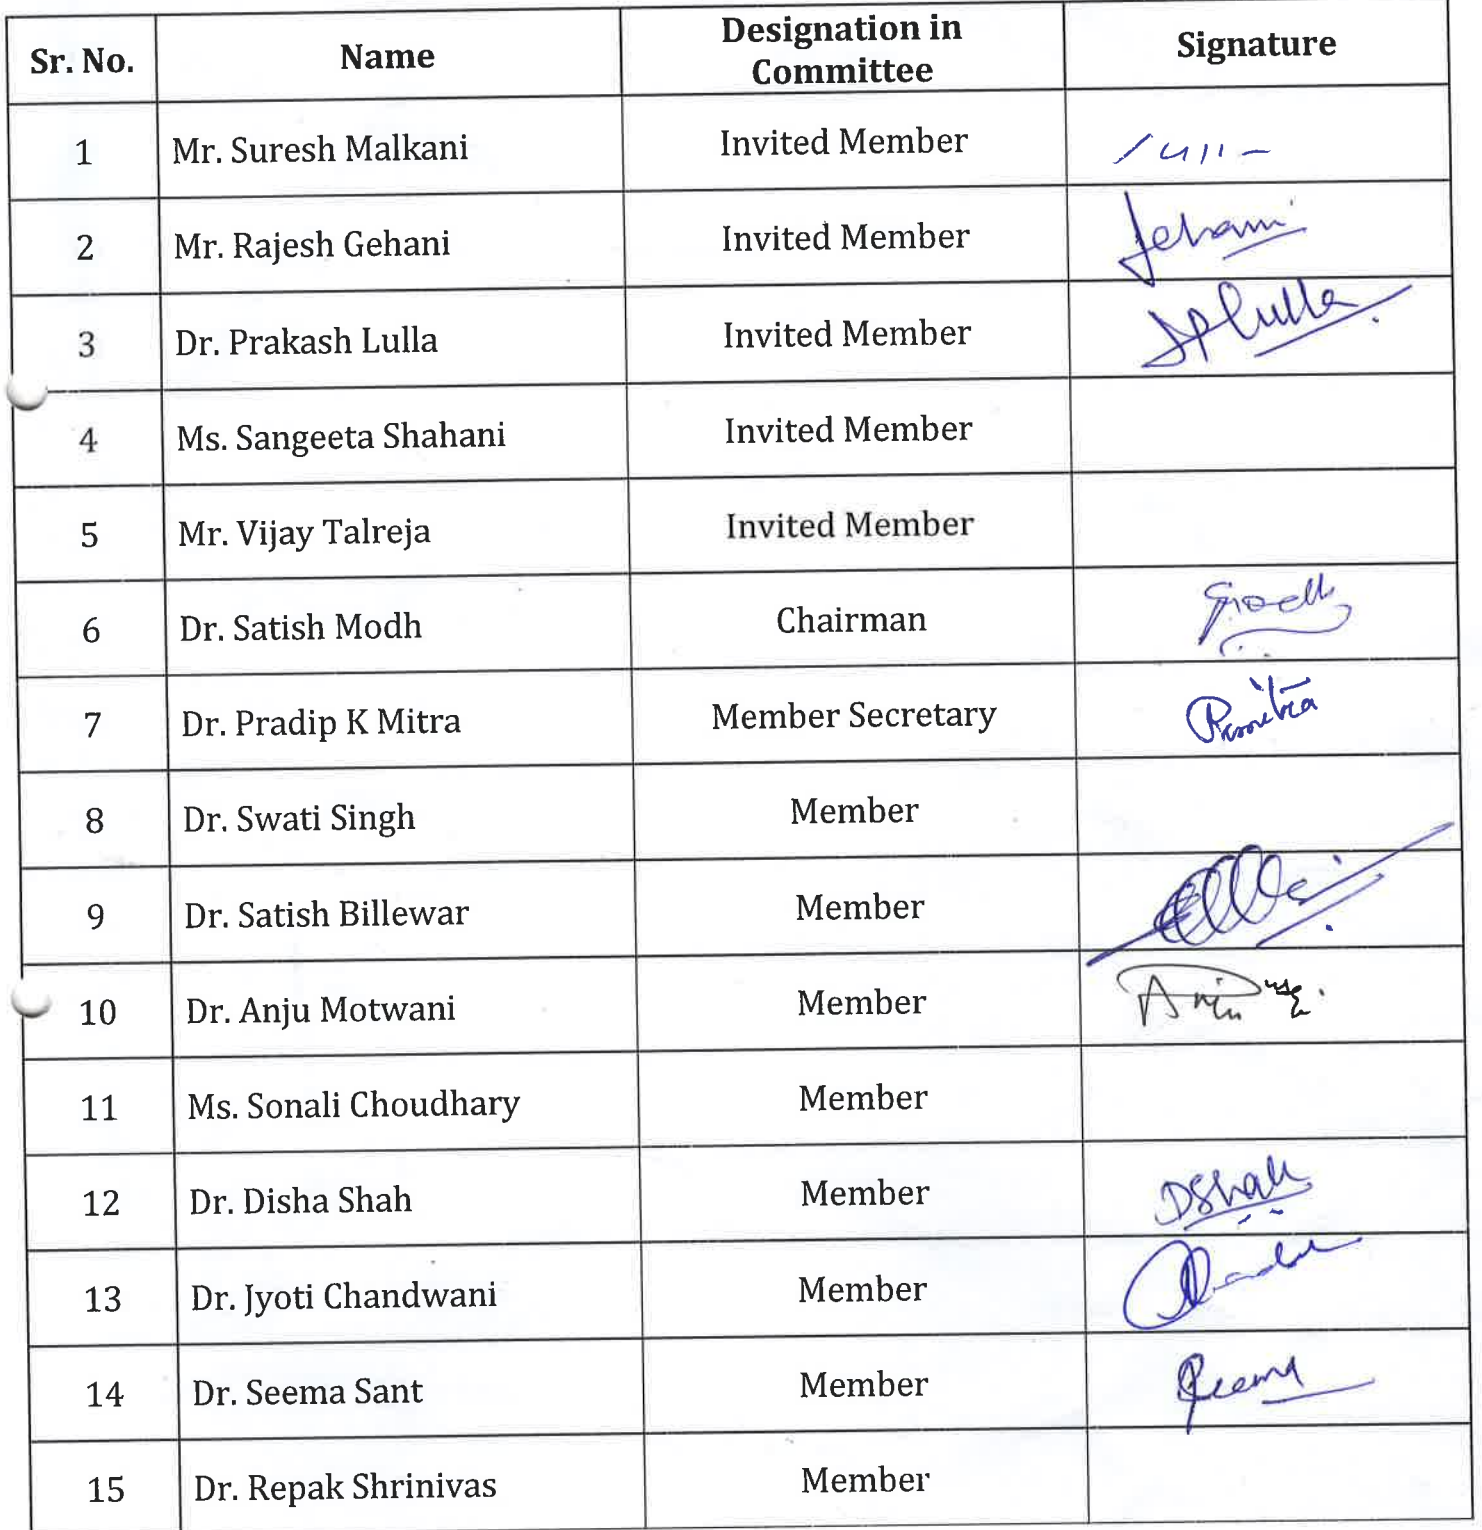 Sr. No. Name Designation in Committee Signature
1 Mr. Suresh Malkani Invited Member
2 Mr. Rajesh Gehani Invited Member Jehani
3 Dr. Prakash Lulla Invited Member JPLulla
4 Ms. Sangeeta Shahani Invited Member
5 Mr. Vijay Talreja Invited Member
6 Dr. Satish Modh Chairman
7 Dr. Pradip K Mitra Member Secretary Pkmitra
8 Dr. Swati Singh Member
9 Dr. Satish Billewar Member
10 Dr. Anju Motwani Member
11 Ms. Sonali Choudhary Member
12 Dr. Disha Shah Member DShah
13 Dr. Jyoti Chandwani Member
14 Dr. Seema Sant Member Seema
15 Dr. Repak Shrinivas Member